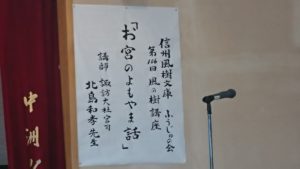 信州風樹文庫 ふうじゅの会
第116回 風の樹講座
「お宮のよもやま話」
講師 諏訪大社宮司
北島和孝先生
中洲